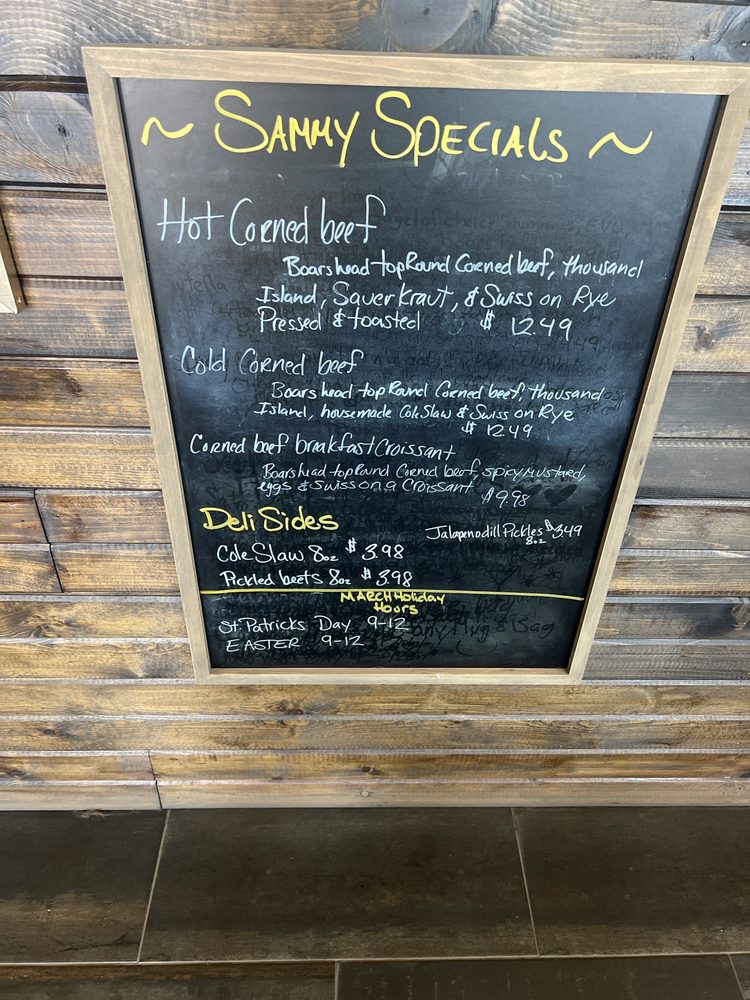 ~ Sammy Specials ~
Hot Corned beef
Boars head top Round Corned beef, thousand
Island, Sauerkraut, & Swiss on Rye
Pressed & toasted $ 12.49
Cold Corned beef
Boars head top Round Corned beef, thousand
Island, housemade Cole Slaw & Swiss on Rye
$ 12.49
Corned beef breakfast Croissant
Boars head top Round Corned beef, spicy mustard,
eggs & Swiss on a Croissant $9.98
Deli Sides
Jalapeno dill Pickles $3.49
8oz
Cole Slaw 8oz $3.98
Pickled beets 8oz $3.98
MARCH Holiday
Hours
St. Patricks Day 9-12
EASTER 9-12